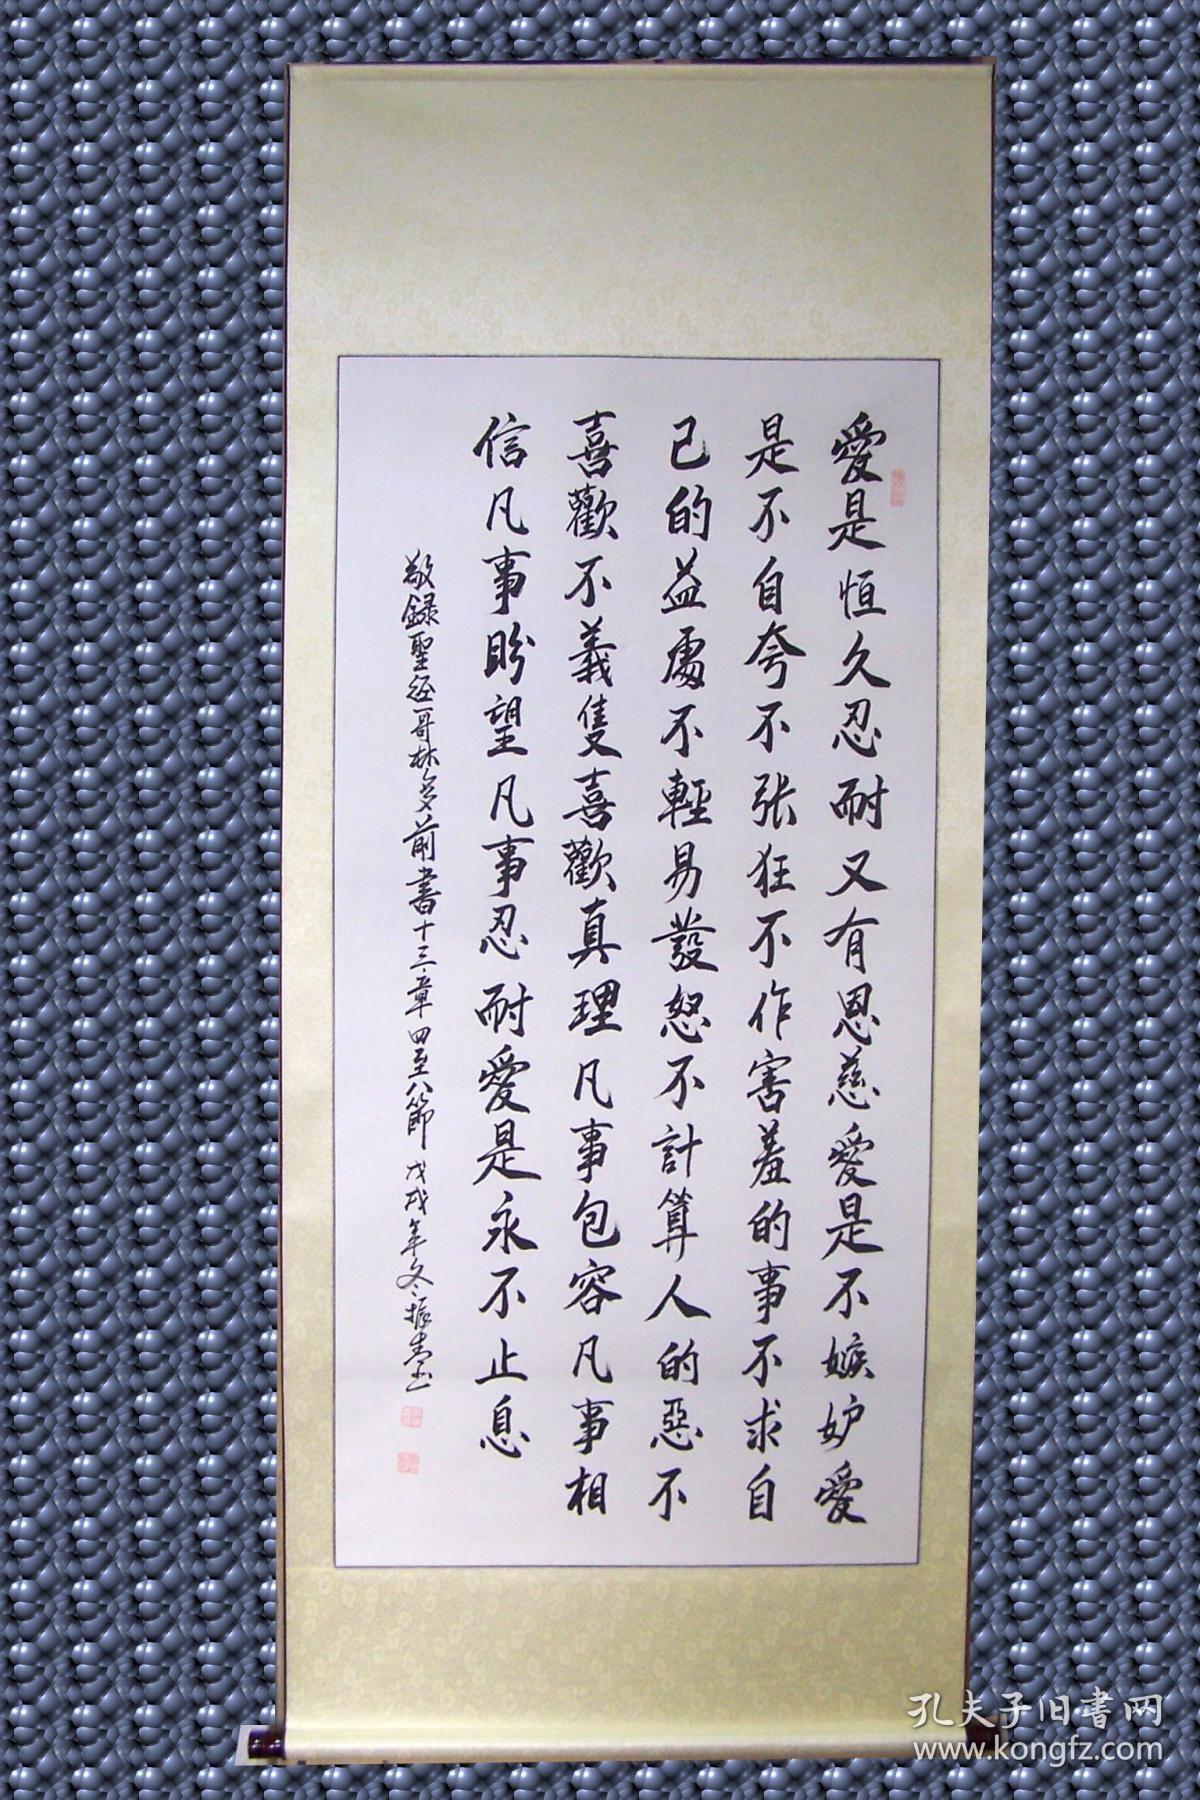 愛是恒久忍耐又有恩慈愛是不嫉妒愛
是不自夸不张狂不作害羞的事不求自
己的益處不輕易發怒不計算人的惡不
喜歡不義隻喜歡真理凡事包容凡事相
信凡事盼望凡事忍耐愛是永不止息
敬録聖经哥林多前書十三章四至八節 戊戌年冬振
孔夫子旧書网
www.kongfz.com